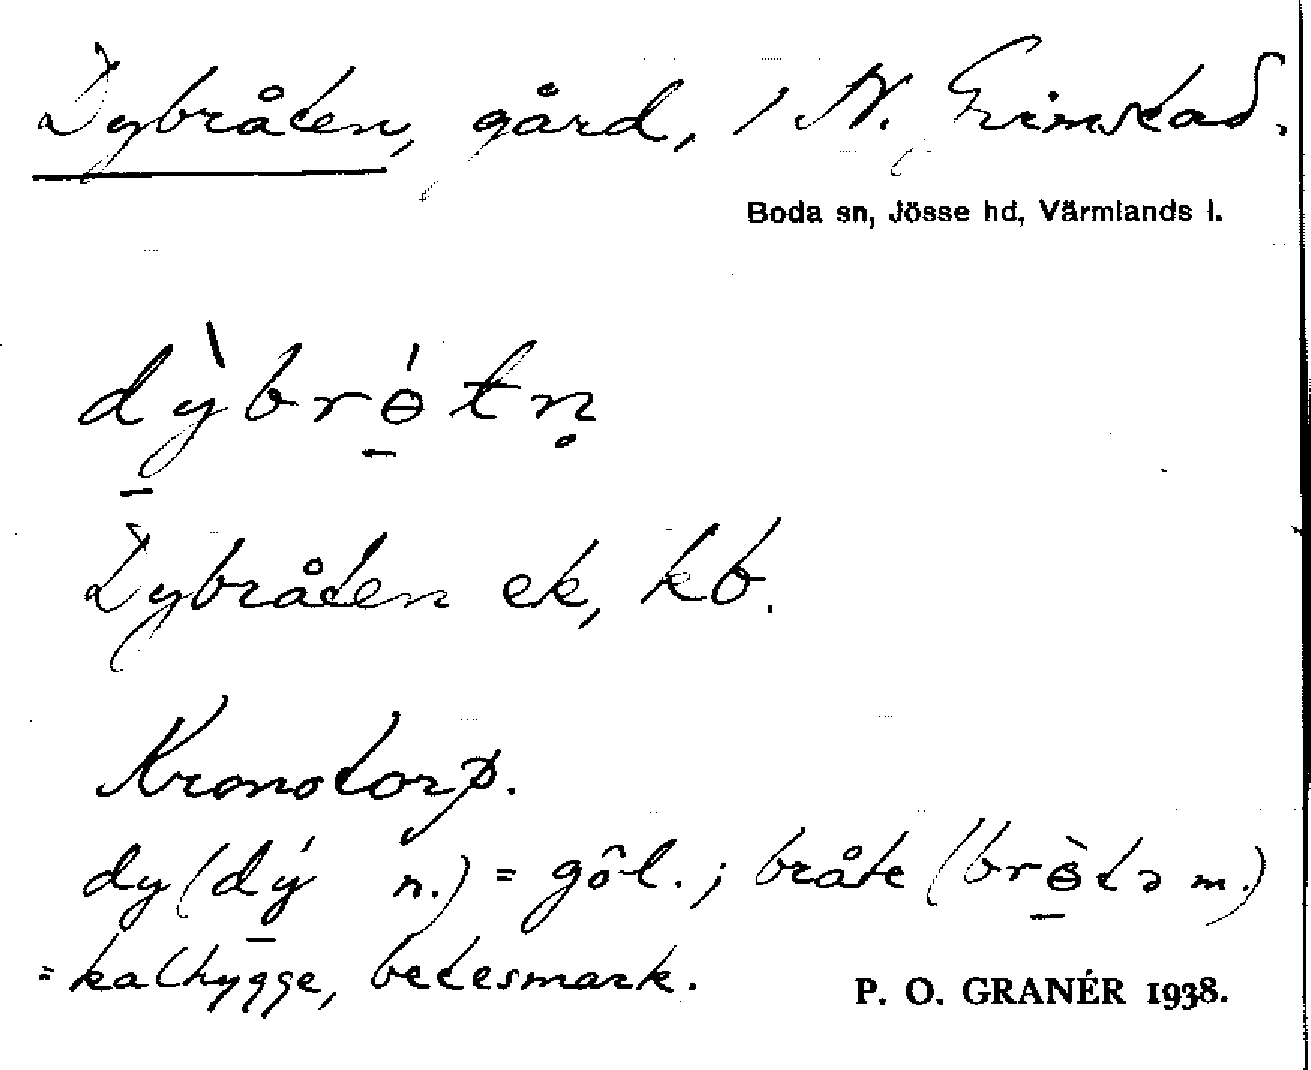 Dybråten, gård, 1 N. Grimstad.
Boda sn, Jösse hd, Värmlands l.
dỳ̱brɵ̱́tn̥
Dybråten ek, kb.
Kronotorp.
dy (dý̱ n.) = göl.; bråte (brɵ̱̀tə m.)
= kalhygge, betesmark.
P. O. GRANÉR 1938.